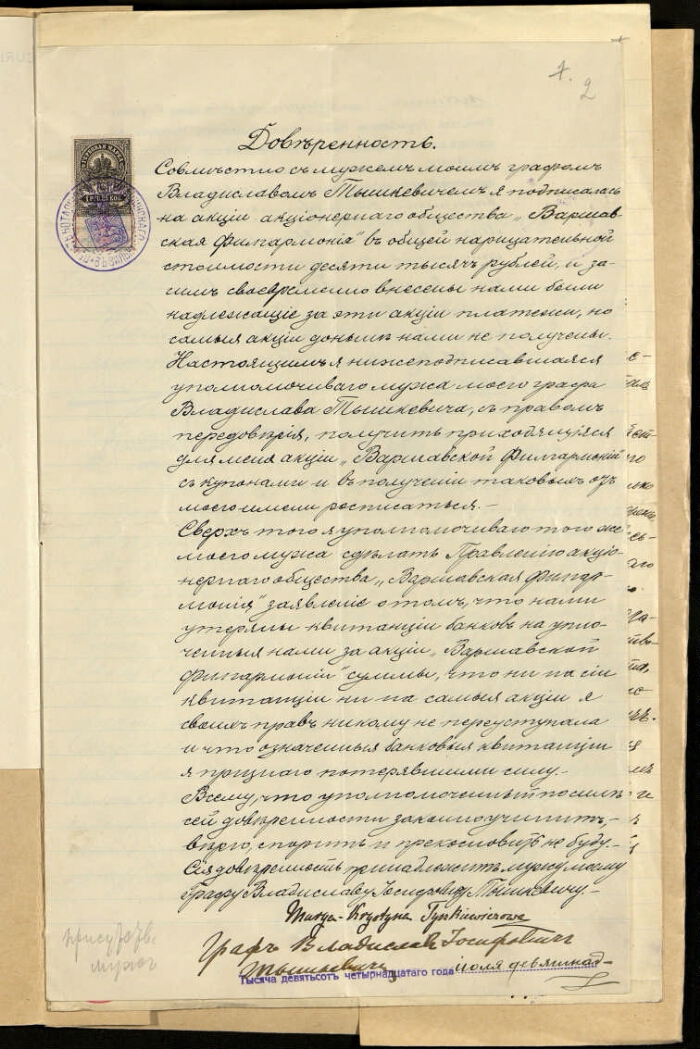 2
Довѣренность.
Совмѣстно съ мужемъ моимъ графомъ
Владиславомъ Тышкевичемъ я подписалась
на акціи акціонернаго общества „Варшав-
ская Филгармонія" въ общей нарицательной
стоимости десяти тысячъ рублей, и за-
симъ своевременно внесены нами были
надлежащіе за эти акціи платежи, но
самыя акціи донынѣ нами не получены.
Настоящимъ я нижеподписавшаяся
уполномочиваю мужа моего графа
Владислава Тышкевича, съ правомъ
передовѣрія, получить приходящіяся
для меня акціи „Варшавской Филгармоніи"
съ купонами и въ полученіи таковыхъ отъ
моего имени росписаться.-
Сверхъ того я уполномочиваю того же
моего мужа сдѣлать Правленію акціо-
нернаго общества „Варшавская Филгар-
монія" заявленіе о томъ, что нами
утеряны квитанціи банковъ на упло-
ченныя нами за акціи „Варшавской
Филгармоніи" суммы, что ни на сіи
квитанціи ни на самыя акціи я
своихъ правъ никому не переуступала
и что означенныя банковыя квитанціи
я признаю потерявшими силу.-
Всему, что уполномоченный по силѣ
сей довѣренности законно учинитъ,-
вѣрю, спорить и прекословить не буду.-
Сія довѣренность принадлежитъ мужу моему
Графу Владиславу Іосифовичу Тышкевичу.-
Marya-Krystyna Tyszkiewiczowa
Графъ Владиславъ Іосифовичъ
Тышкевичъ
Тысяча девятьсотъ четырнадцатаго года іюля девятнад-